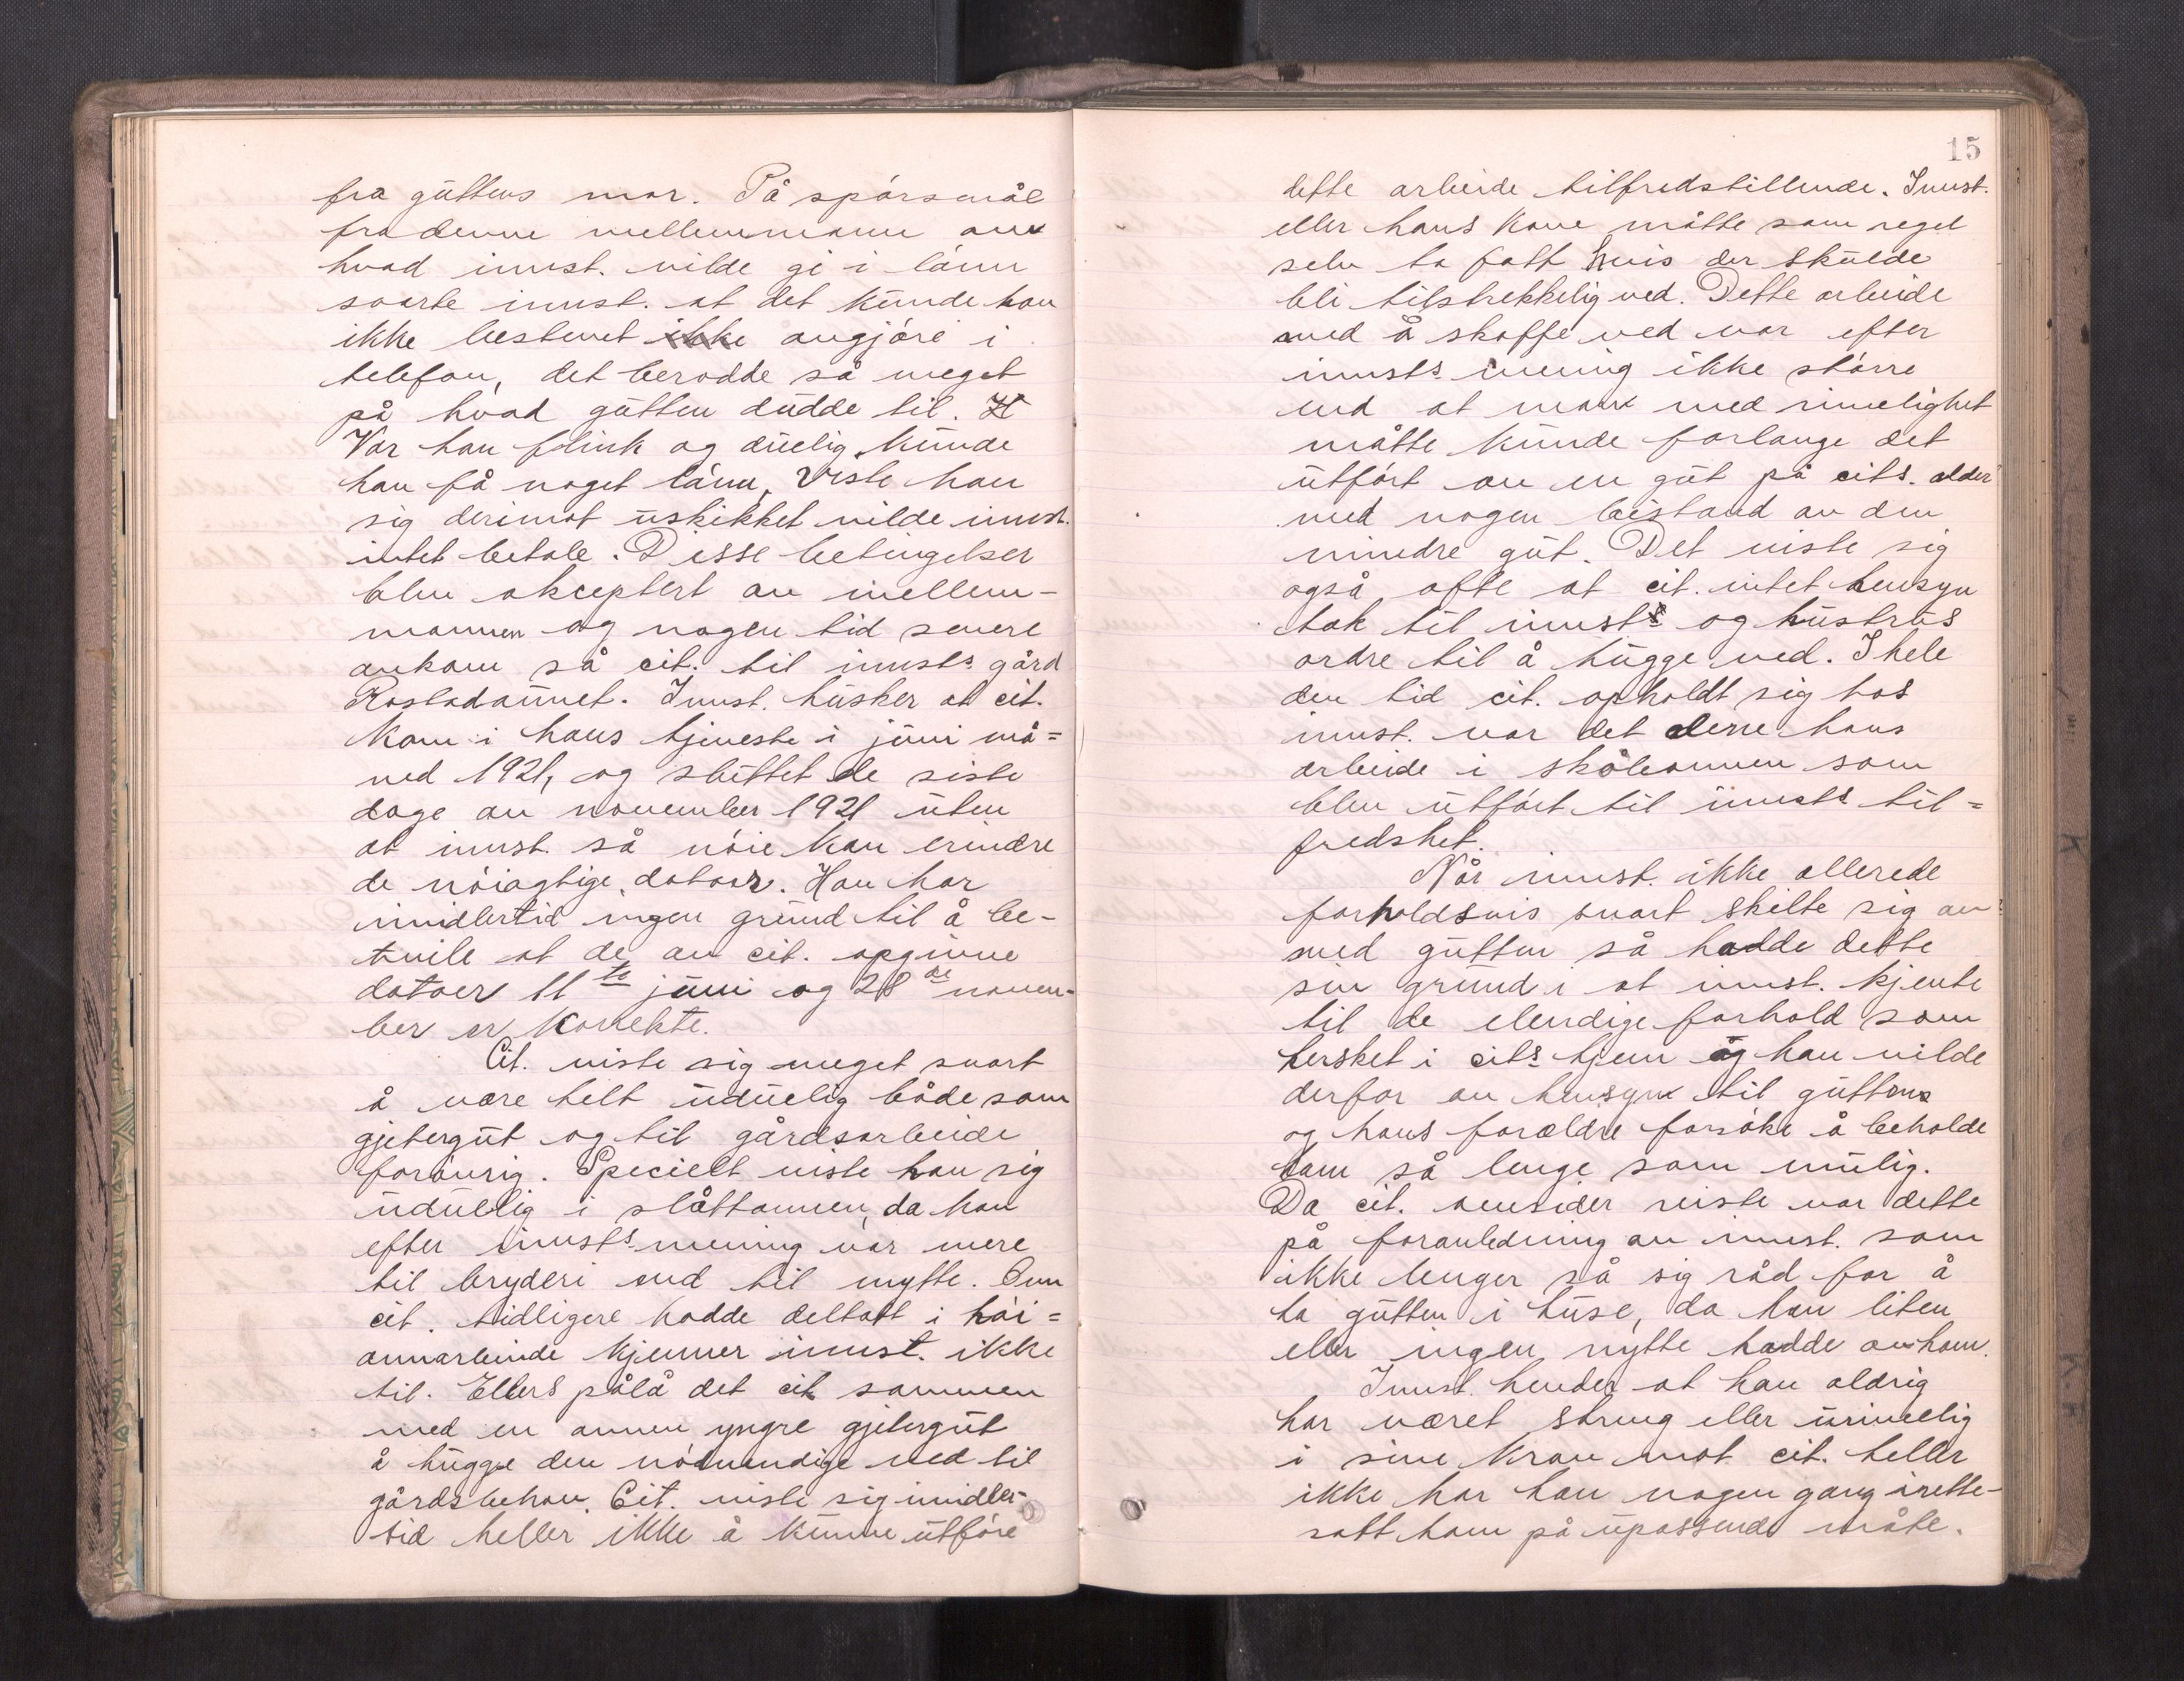 fra guttens mor. På spørsmål
fra denne mellemmann om
hvad innst. vilde gi i lønn
svarte innst. at det kunde han
ikke bestemt ikke avgjøre i
telefon, det berodde så meget
på hvad gutten dudde til. H
Var han flink og duelig kunde
han få noget lønn, viste han
sig derimot uskikket vilde innst.
intet betale. Disse betingelser
blev akceptert av mellem-
mannen og nogen tid senere
ankom så cit. til innsts gård
Rostadaunet. Innst. husker at cit.
kom i hans tjeneste i juni må=
ned 1921, og sluttet de siste
dage av november 1921 uten
at innst. så nøie kan erindre
de nøiagtige datoer. Han har
imidlertid ingen grund til å be-
tvile at de av cit. opgivne
datoer 11te juni og 28de novem-
ber er korrekte.
Cit. viste sig meget snart
å være helt uduelig både som
gjetergut og til gårdsarbeide
forøvrig. Specielt viste han sig
uduelig i slåttonnen, da han
efter innsts mening var mere
til bryderi end til nytte. Om
cit. tidligere hadde deltatt i høi=
onnarbeide kjenner innst. ikke
til. Ellers pålå det cit. sammen
med en annen yngre gjetergut
å hugge den nødvendige ved til
gårdsbehov. Cit. viste sig imidler-
tid heller ikke å kunne utføre
15
dette arbeide tilfredstillende. Innst.
eller hans kone måtte som regel
selv ta fatt hvis der skulde
bli tilstrekkelig ved. Dette arbeide
med å skaffe ved var efter
innsts mening ikke større
end at man med rimelighet
måtte kunde forlange det
utført av en gut på cits. alder
med nogen bistand av den
mindre gut. Det viste sig
også ofte at cit. intet hensyn
tok til innsts og hustrus
ordre til å hugge ved. I hele
den tid cit. opholdt sig hos
innst. var det denne hans
arbeide i skåleonnen som
blev utført til innsts til=
fredshet.
Når innst. ikke allerede
forholdsvis snart skilte sig av
med gutten så hadde dette
sin grund i at innst. kjente
til de elendige forhold som
hersket i cits hjem og han vilde
derfor av hensyn til guttens
og hans forældre forsøke å beholde
ham så lenge som mulig.
Da cit. omsider reiste var dette
på foranledning av innst. som
ikke lenger så sig råd for å
ha gutten i huse, da han liten
eller ingen nytte hadde av ham.
Innst. hevder at han aldrig
har været streng eller urimelig
i sine krav mot cit. heller
ikke har han nogen gang irette-
satt ham på upassende måte.